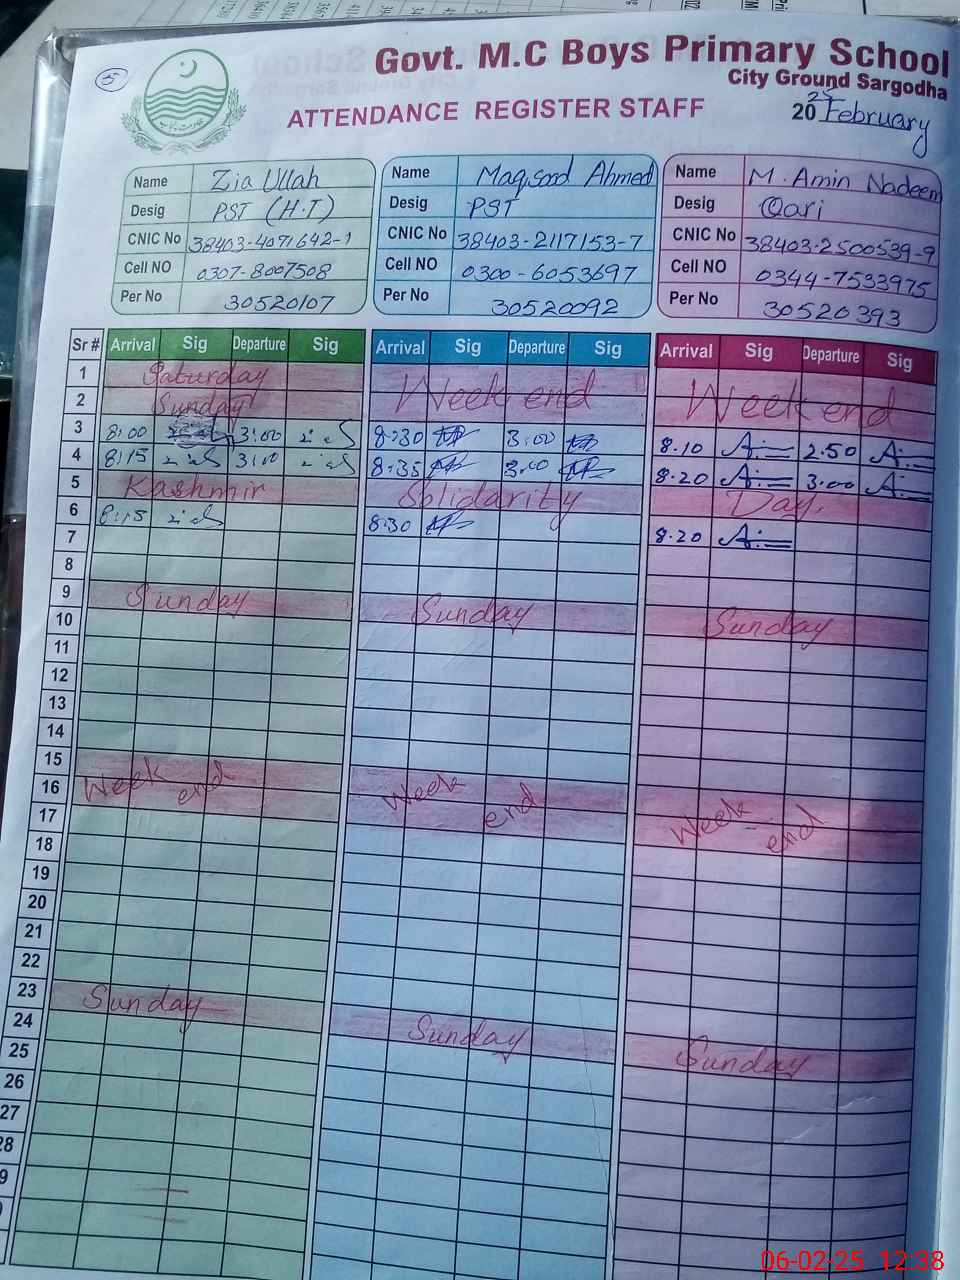 5
Govt. M.C Boys Primary School
City Ground Sargodha
ATTENDANCE REGISTER STAFF
2025 February
Name Zia Ullah
Desig PST (H.T)
CNIC No 38403-4071642-1
Cell NO 0307-8007508
Per No 30520107
Name Maqsood Ahmed
Desig PST
CNIC No 38403-2117153-7
Cell NO 0300-6053697
Per No 30520092
Name M. Amin Nadeem
Desig Qari
CNIC No 38403-2500539-9
Cell NO 0344-7533975
Per No 30520393
Sr # Arrival Sig Departure Sig Arrival Sig Departure Sig Arrival Sig Departure Sig
1 Saturday Week end Week end
2 Sunday
3 8:00 3:00 8:30 3:00 8.10 2.50
4 8:15 3:00 8:35 3:00 8.20 3.00
5 Kashmir Solidarity Day.
6 8:15 8:30 8.20
7
8
9 Sunday Sunday Sunday
10
11
12
13
14
15 Week end Week end Week end
16
17
18
19
20
21
22
23 Sunday Sunday Sunday
24
25
26
27
28
9
06-02-25 12:38